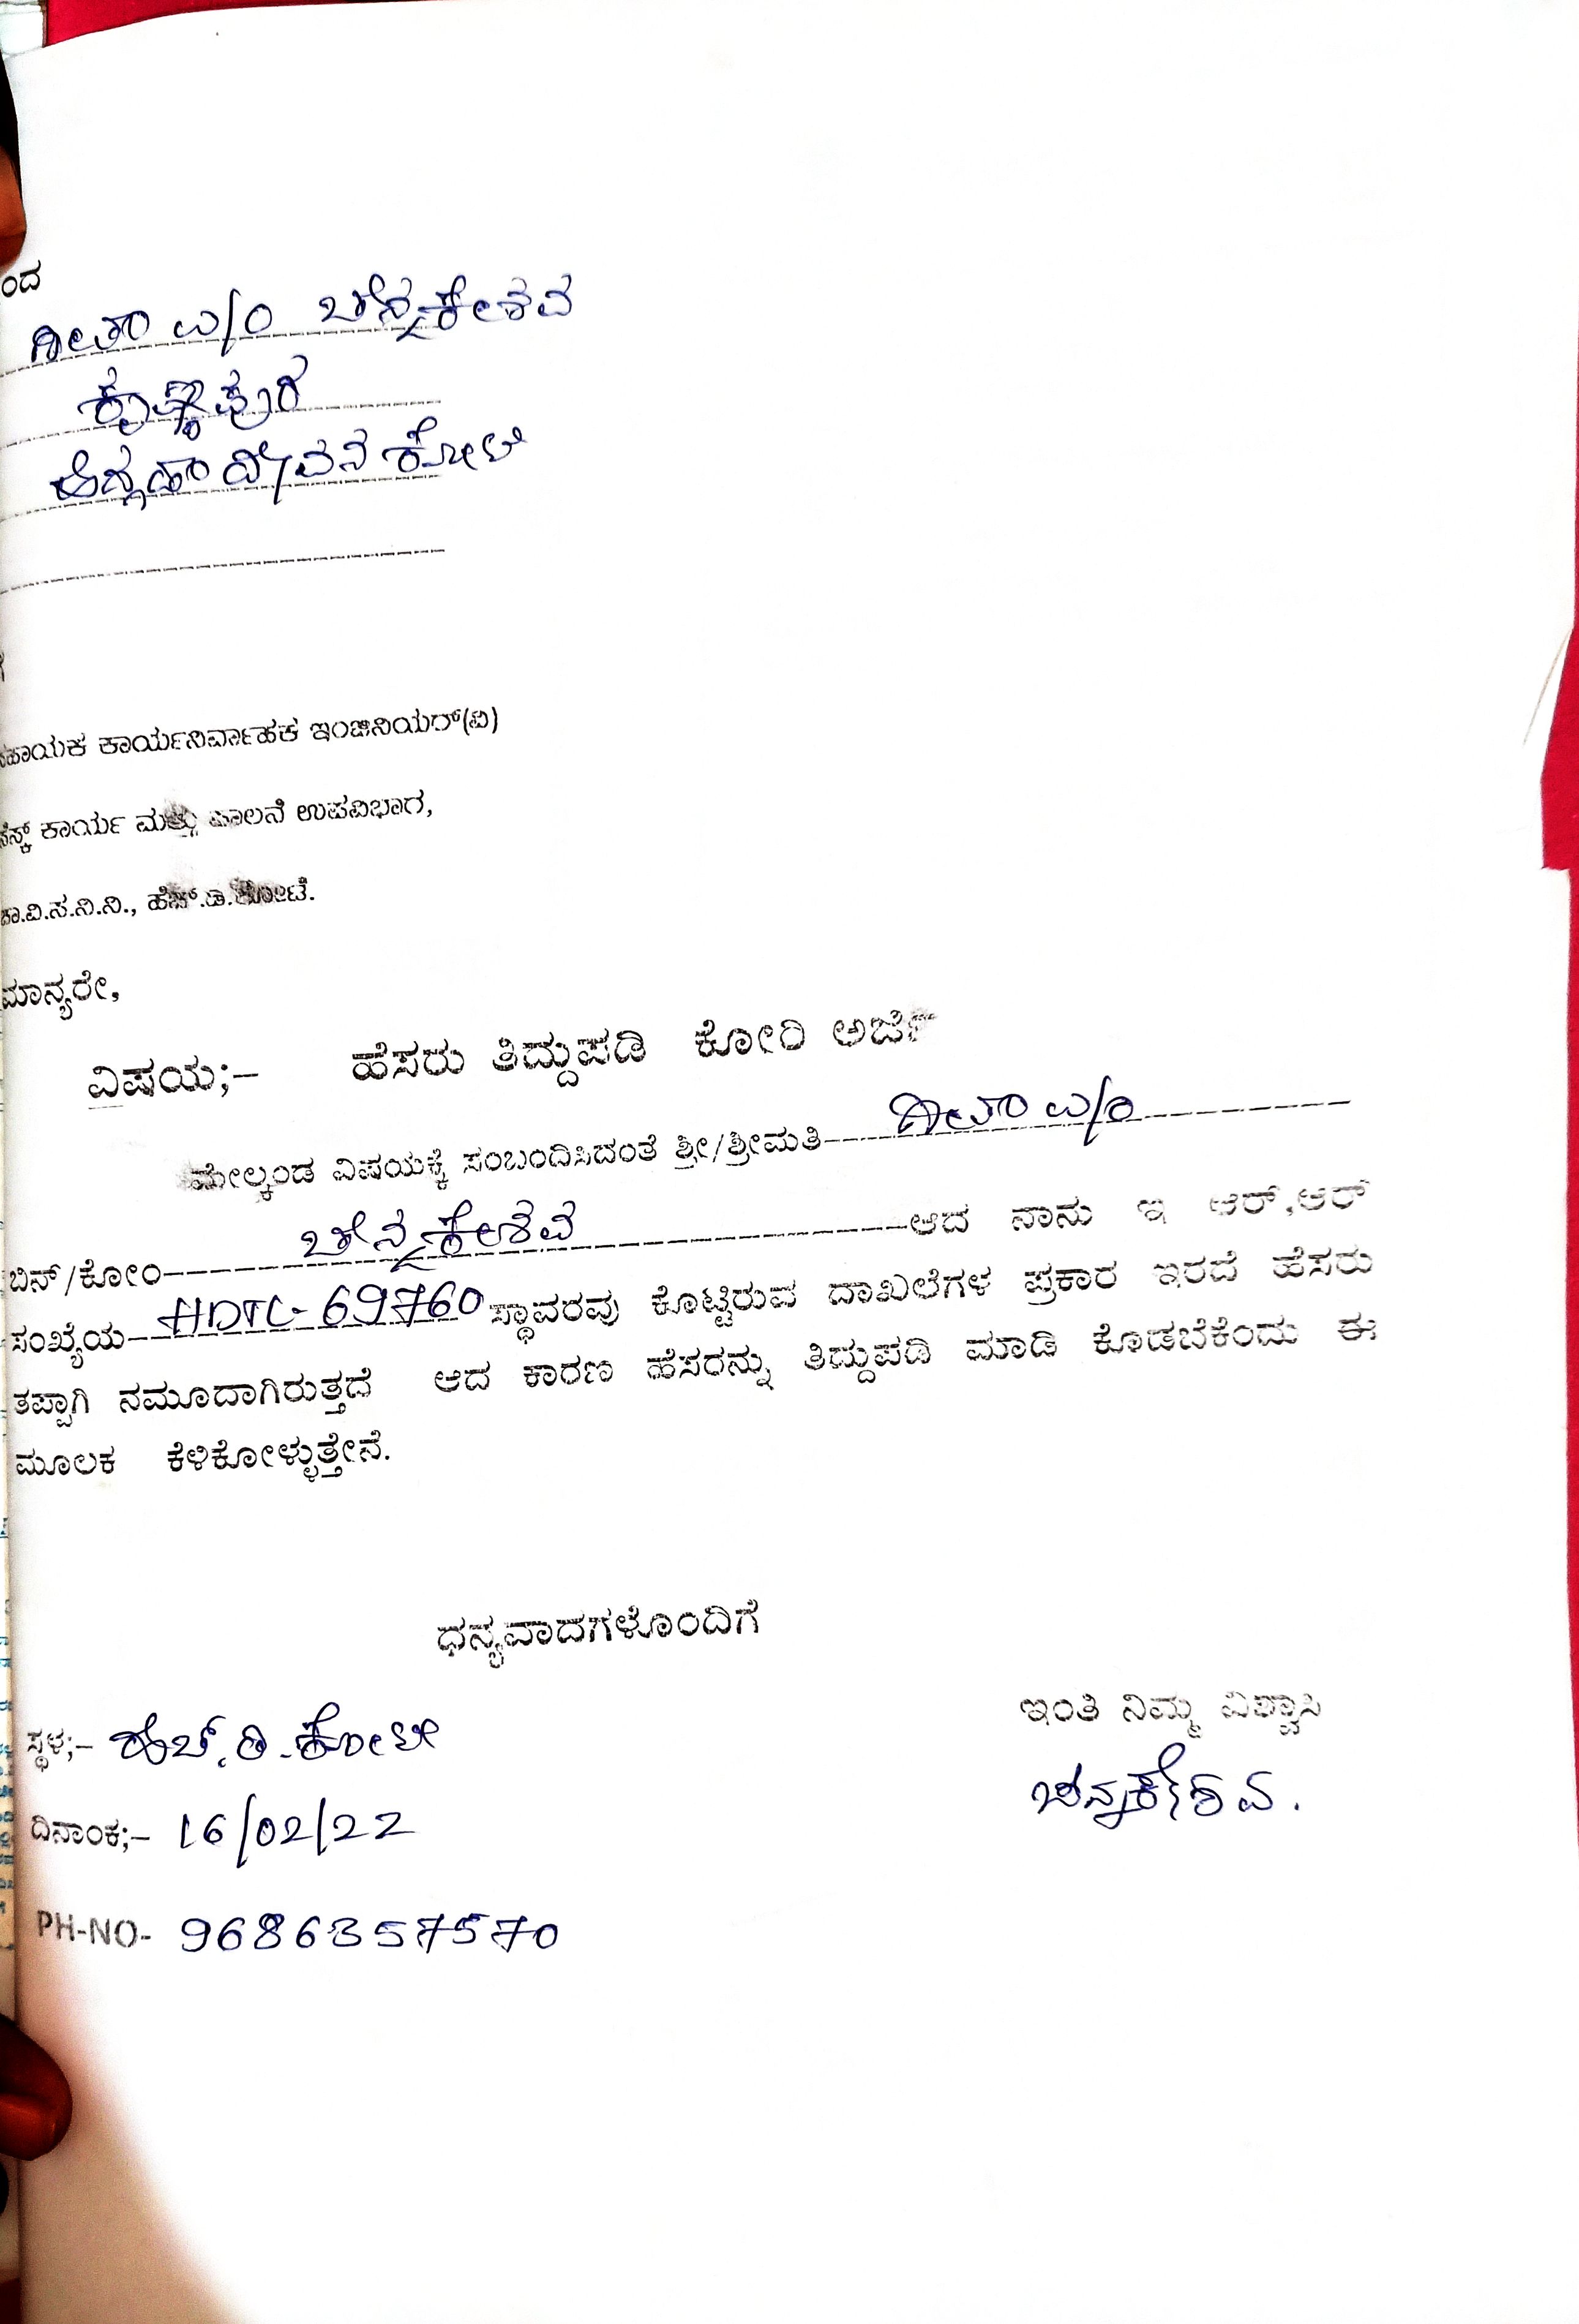 ಂದ
ಗೀತಾ w/o ಚೆನ್ನಕೇಶವ
ಕೃಷ್ಣಾಪುರ
ಕೋಟೆ
ಸಹಾಯಕ ಕಾರ್ಯನಿರ್ವಾಹಕ ಇಂಜಿನಿಯರ್(ವಿ)
ಕಾರ್ಯ ಮತ್ತು ಪಾಲನೆ ಉಪವಿಭಾಗ,
ಚಾ.ವಿ.ಸ.ನಿ.ನಿ., ಹೆಚ್.ಡಿ.ಕೋಟೆ.
ಮಾನ್ಯರೇ,
ವಿಷಯ;– ಹೆಸರು ತಿದ್ದುಪಡಿ ಕೋರಿ ಅರ್ಜಿ
ಮೇಲ್ಕಂಡ ವಿಷಯಕ್ಕೆ ಸಂಬಂದಿಸಿದಂತೆ ಶ್ರೀ/ಶ್ರೀಮತಿ ಗೀತಾ w/o
ಬಿನ್/ಕೋಂ ಚೆನ್ನಕೇಶವ ಆದ ನಾನು ಇ ಆರ್,ಆರ್
ಸಂಖ್ಯೆಯ HDTL-69760 ಸ್ಥಾವರವು ಕೊಟ್ಟಿರುವ ದಾಖಲೆಗಳ ಪ್ರಕಾರ ಇರದೆ ಹೆಸರು
ತಪ್ಪಾಗಿ ನಮೂದಾಗಿರುತ್ತದೆ ಆದ ಕಾರಣ ಹೆಸರನ್ನು ತಿದ್ದುಪಡಿ ಮಾಡಿ ಕೊಡಬೆಕೆಂದು ಈ
ಮೂಲಕ ಕೆಳಿಕೋಳ್ಳುತ್ತೇನೆ.
ಧನ್ಯವಾದಗಳೊಂದಿಗೆ
ಇಂತಿ ನಿಮ್ಮ ವಿಶ್ವಾಸಿ
ಸ್ಥಳ;– ಹೆಚ್.ಡಿ.ಕೋಟೆ
ಚೆನ್ನಕೇಶವ.
ದಿನಾಂಕ;– 16/02/22
PH-NO- 9686357570